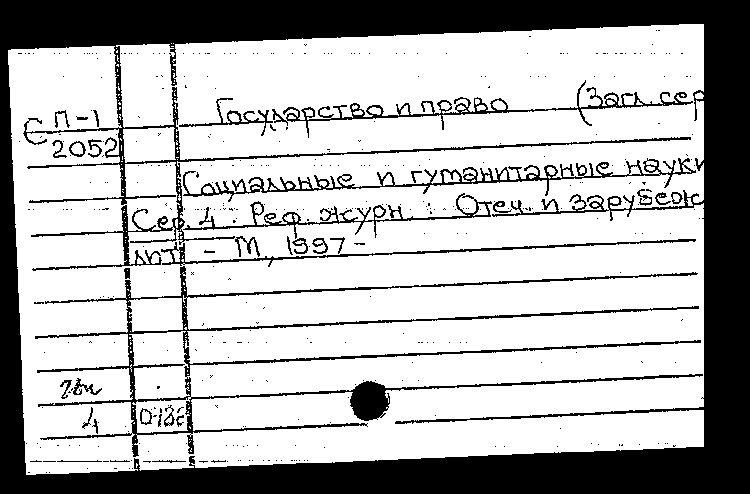 С П-1 Государство и право (Загл. сер
2052
Социальные и гуманитарные науки
Сер. 4. Реф. журн. : Отеч. и зарубеж
лит. - М, 1997 -
4